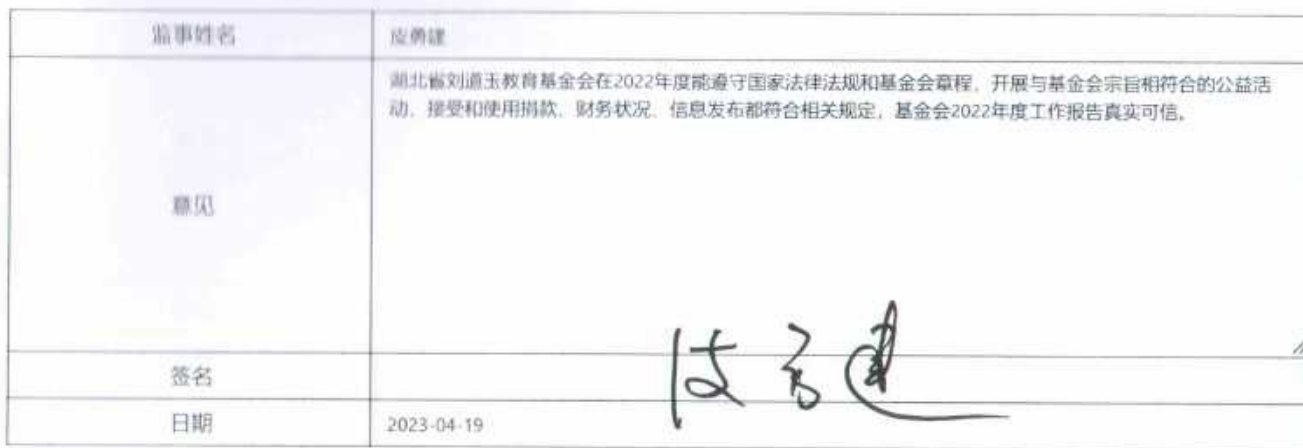 监事姓名
应勇建
湖北省刘道玉教育基金会在2022年度能遵守国家法律法规和基金会章程，开展与基金会宗旨相符合的公益活
动、接受和使用捐款、财务状况、信息发布都符合相关规定，基金会2022年度工作报告真实可信。
意见
签名
日期
2023-04-19